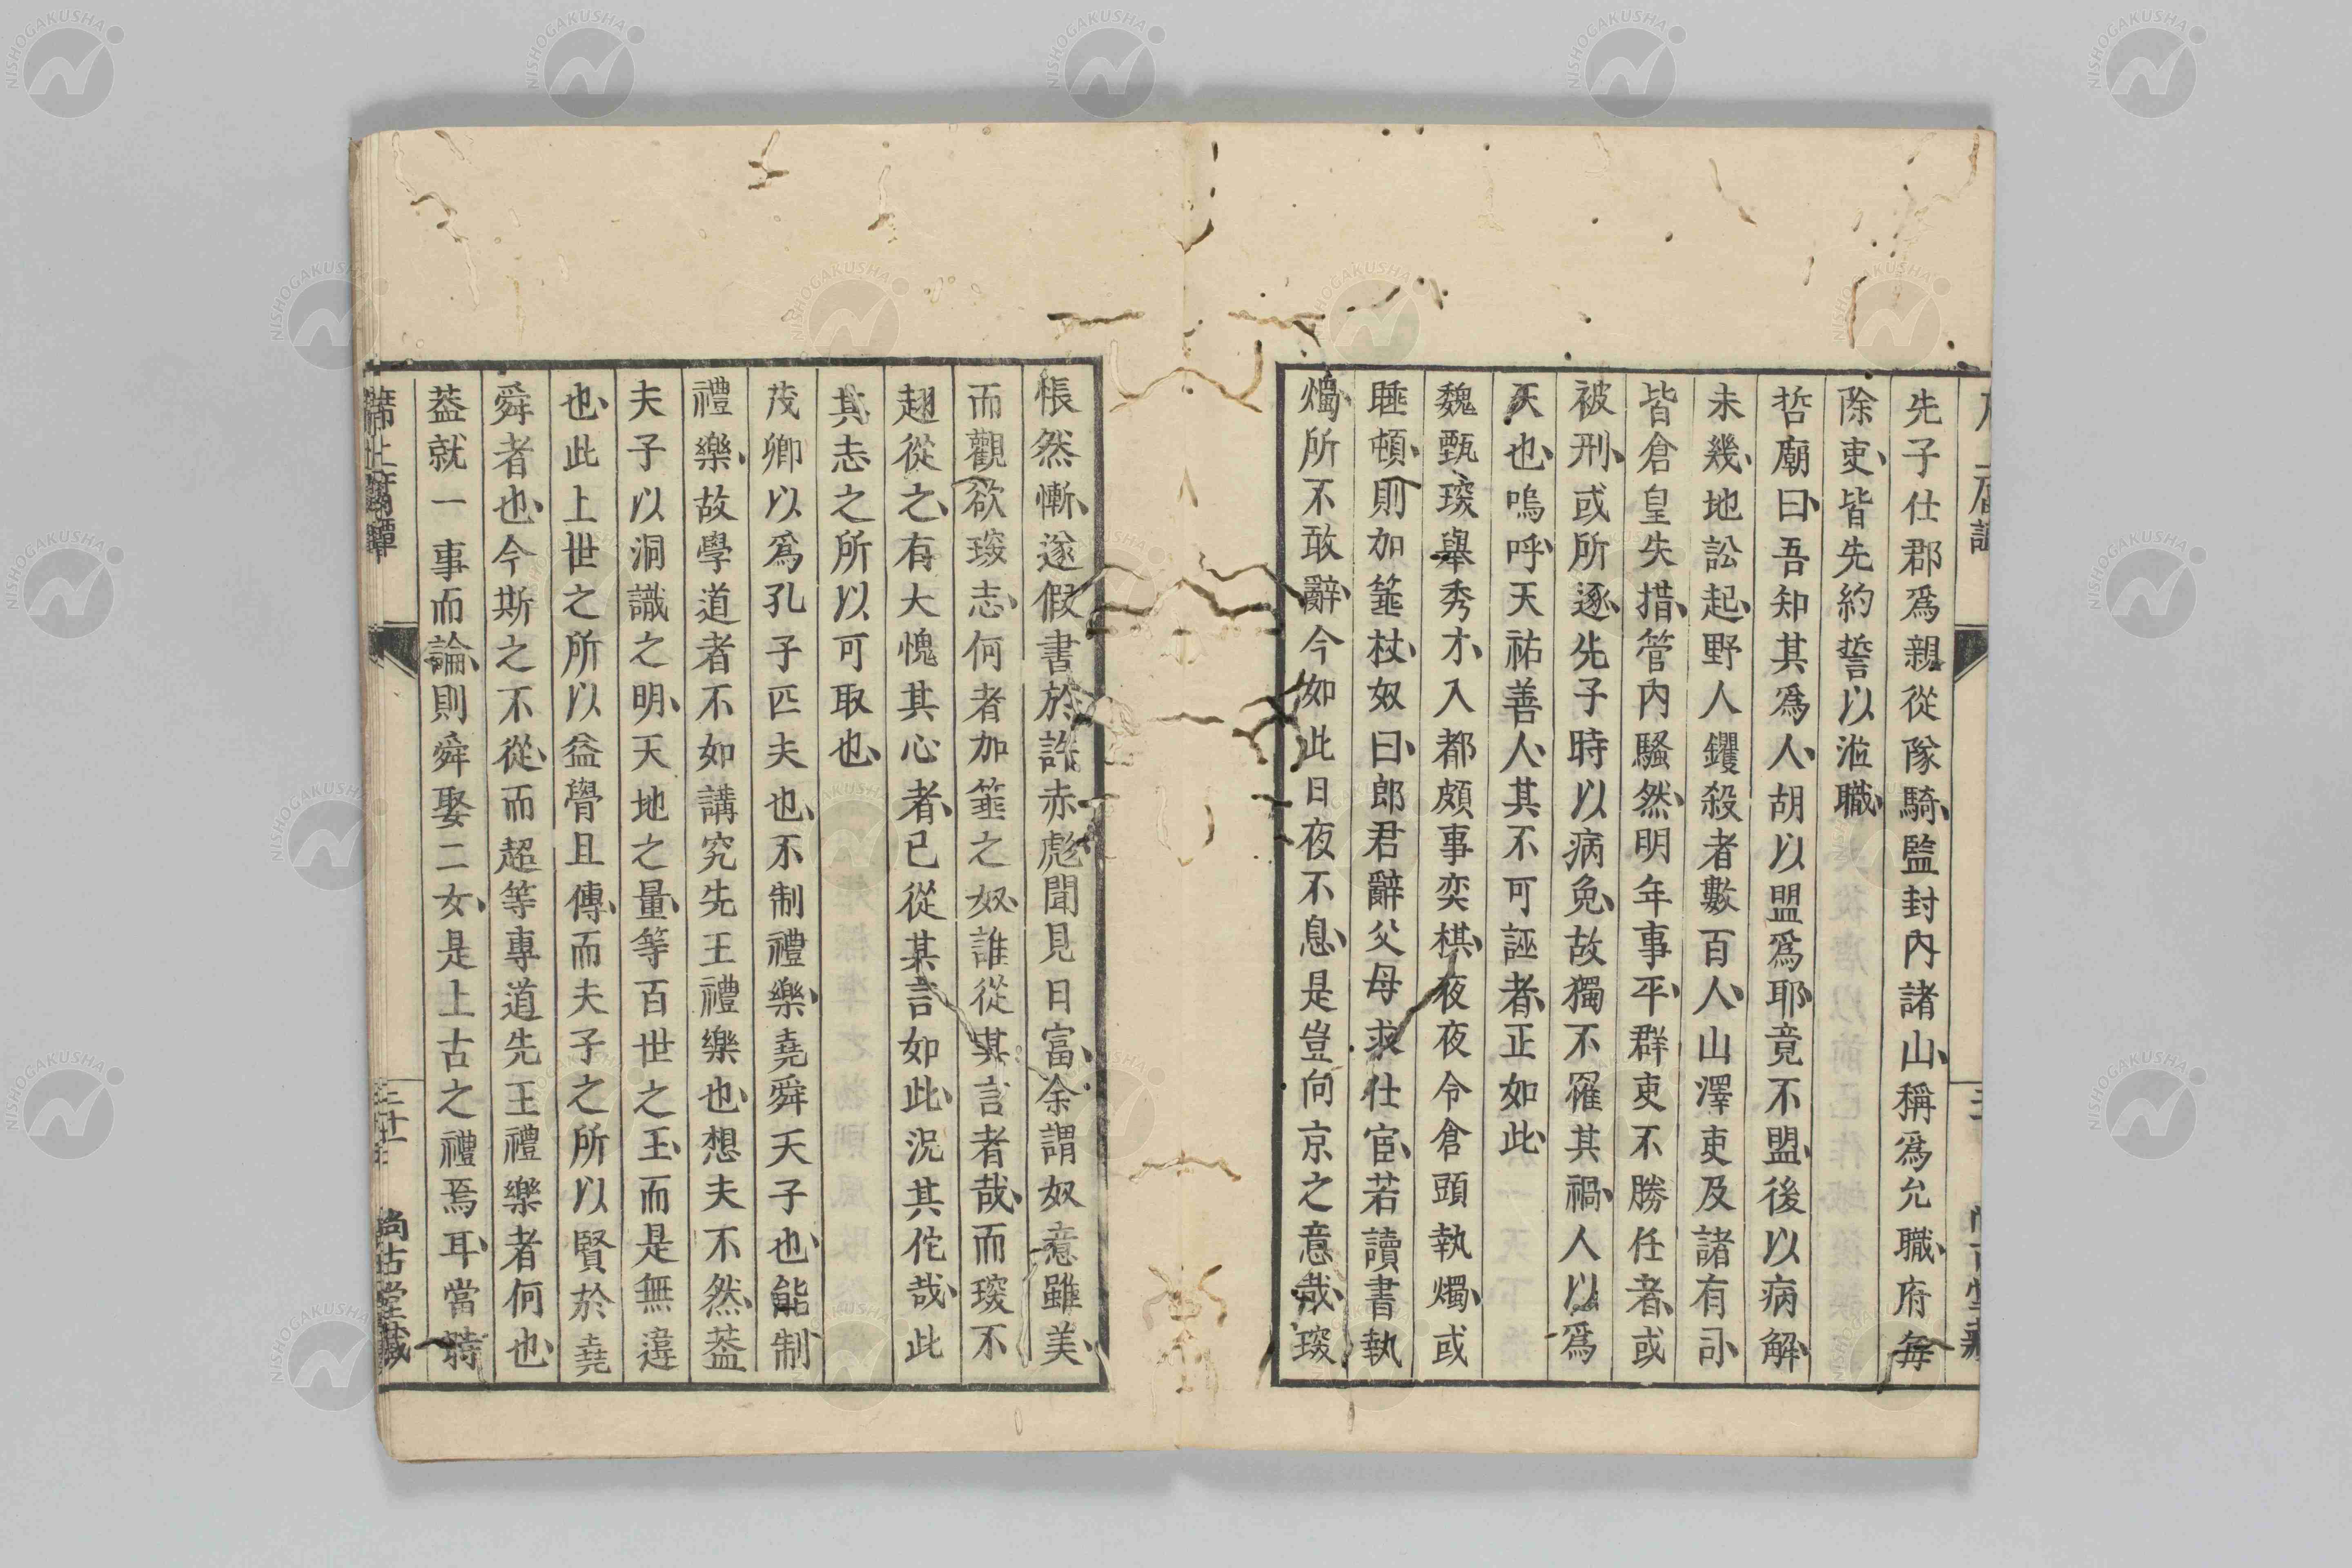 先子仕郡爲親從隊騎、監封內諸山、稱爲允職、府每
除吏、皆先約誓以涖職、
哲廟曰、吾知其爲人、胡以盟爲耶、竟不盟、後以病解、
未幾、地訟起、野人钁殺者數百人、山澤吏及諸有司、
皆倉皇失措、管內騷然、明年事平、群吏不勝任者、或
被刑、或所逐、先子時以病免、故獨不罹其禍、人以爲
天也、嗚呼、天祐善人、其不可誣者、正如此、
魏甄琛舉秀才、入都頗事奕棋、夜夜令倉頭執燭、或
睡頓、則加箠杖、奴曰、郎君辭父母求仕宦、若讀書執
燭、所不敢辭、今如此日夜不息、是豈向京之意哉、琛
悵然慚、遂假書於許赤彪、聞見日富、余謂奴意雖美、
而觀欲琛志、何者加箠之奴、誰從其言者哉、而琛不
趐從之、有大愧其心者、已從某言如此、況其佗哉、此
其志之所以可取也、
茂卿以爲孔子匹夫也、不制禮樂、堯舜天子也、能制
禮樂、故學道者不如講究先王禮樂也、想夫不然、葢
夫子以洞識之明、天地之量、等百世之王、而是無違
也、此上世之所以益譽且傳、而夫子之所以賢於堯
舜者也、今斯之不從、而超等專道先王禮樂者何也、
葢就一事而論、則舜娶二女、是上古之禮焉耳、當時
尚古堂藏
NISHOGAKUSHA